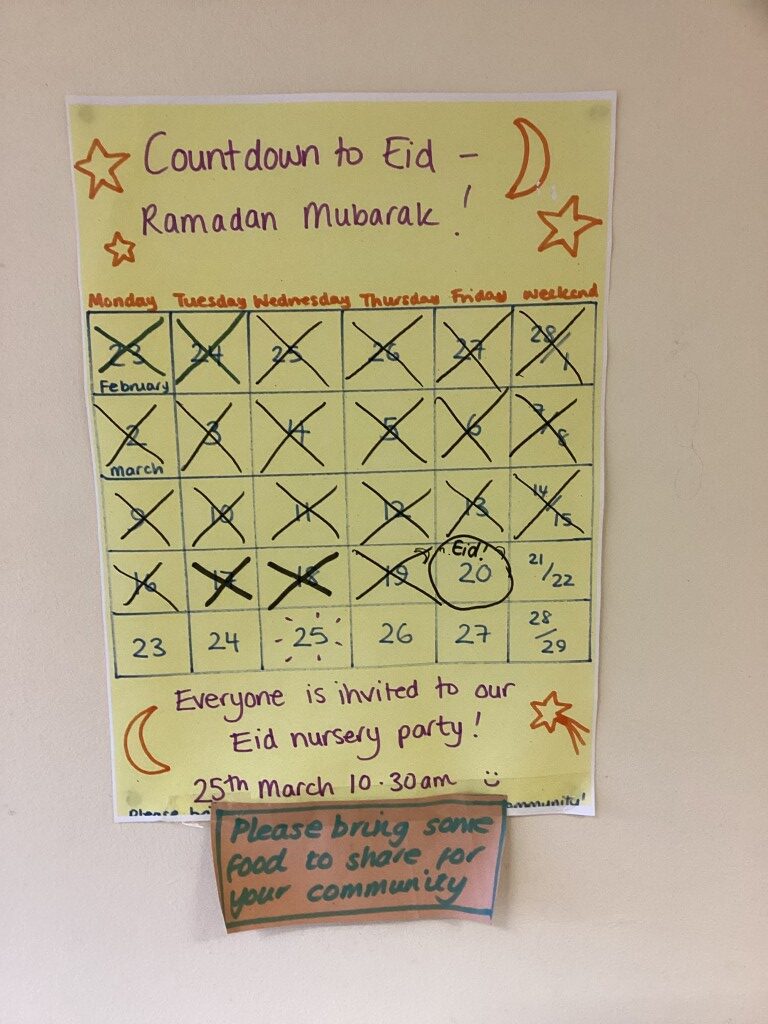 Countdown to Eid -
Ramadan Mubarak!
Monday Tuesday Wednesday Thursday Friday Weekend
23 24 25 26 27 28/1
February
2 3 4 5 6 7/8
March
9 10 11 12 13 14/15
Eid!
16 17 18 19 20 21/22
23 24 25 26 27 28/29
Everyone is invited to our
Eid nursery party!
25th March 10.30am ü
Please community!
Please bring some
food to share for
your community